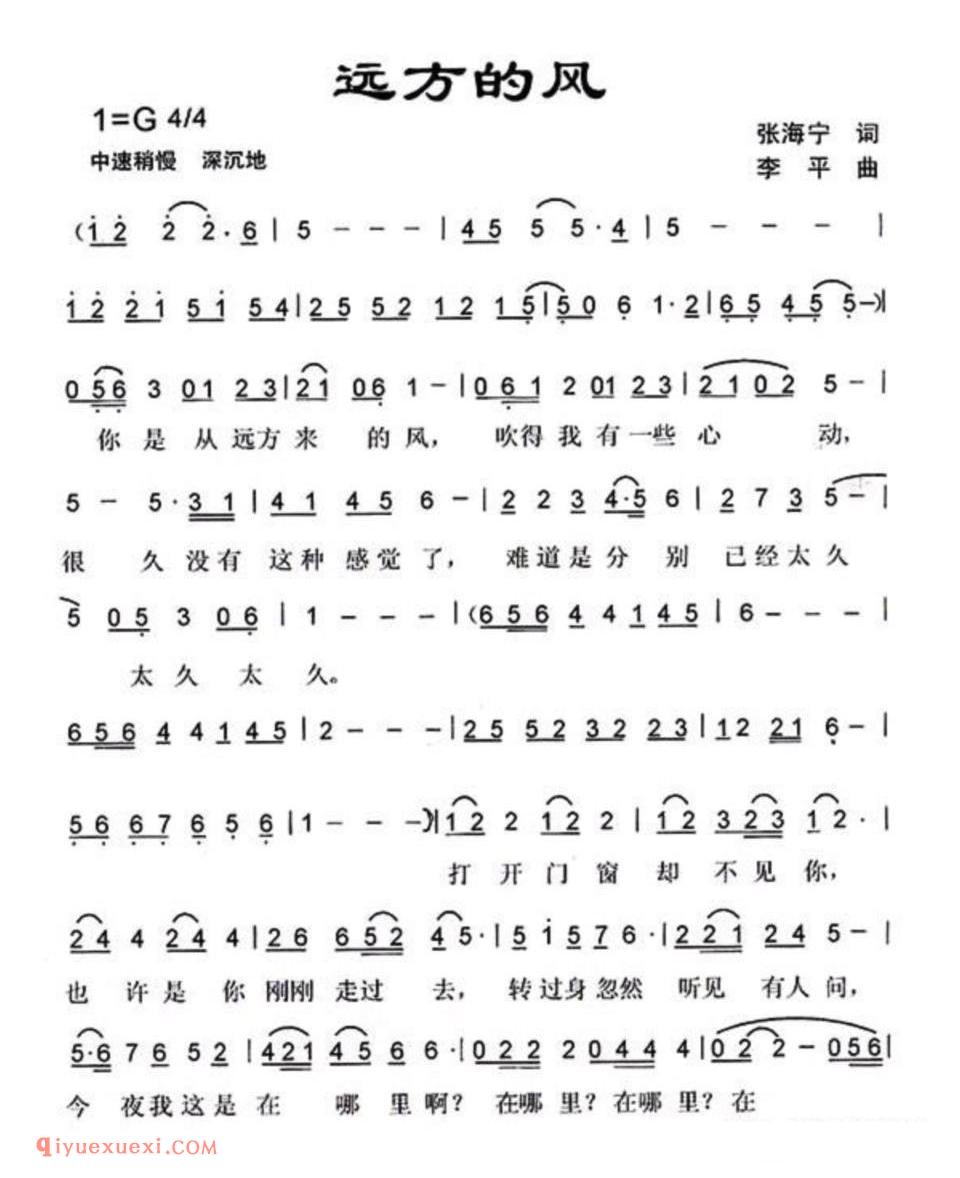 远方的风
1=G 4/4
中速稍慢 深沉地
张海宁 词
李 平 曲
(i̇ 2̇ 2̇ 2̇· 6 | 5 - - - | 4 5 5 5· 4 | 5 - - - |
i̇ 2̇ 2̇ i̇ 5 i̇ 5 4 | 2 5 5 2 1 2 1 5̣ | 5̣ 0 6̣ 1· 2 | 6̣ 5̣ 4̣ 5̣ 5̣ -) |
0 5̣ 6̣ 3 0 1 2 3 | 2 1 0 6̣ 1 - | 0 6̣ 1 2 0 1 2 3 | 2 1 0 2 5 - |
你是从远方来 的风, 吹得我有一些心 动,
5 - 5· 3 1 | 4 1 4 5 6 - | 2 2 3 4· 5 6 | 2 7 3 5 - |
很 久没有这种感觉了, 难道是分 别已经太久
5 0 5̣ 3 0 6̣ | 1 - - - | (6 5 6 4 4 1 4 5 | 6 - - - |
太久太 久。
6 5 6 4 4 1 4 5 | 2 - - - | 2 5 5 2 3 2 2 3 | 1 2 2 1 6̣ - |
5̣ 6̣ 6̣ 7̣ 6̣ 5̣ 6̣ | 1 - - -) | 1 2 2 1 2 2 | 1 2 3 2 3 1 2· |
打开门窗却 不见你,
2 4 4 2 4 4 | 2 6 6 5 2 4 5· | 5 i̇ 5 7 6· | 2 2 1 2 4 5 - |
也许是你刚刚走过 去, 转过身忽然 听见 有人问,
5· 6 7 6 5 2 | 4 2 1 4 5 6 6· | 0 2 2 2 0 4 4 4 | 0 2 2 - 0 5 6 |
今 夜我这是在 哪里啊? 在哪里?在哪里?在
qiyuexuexi.com